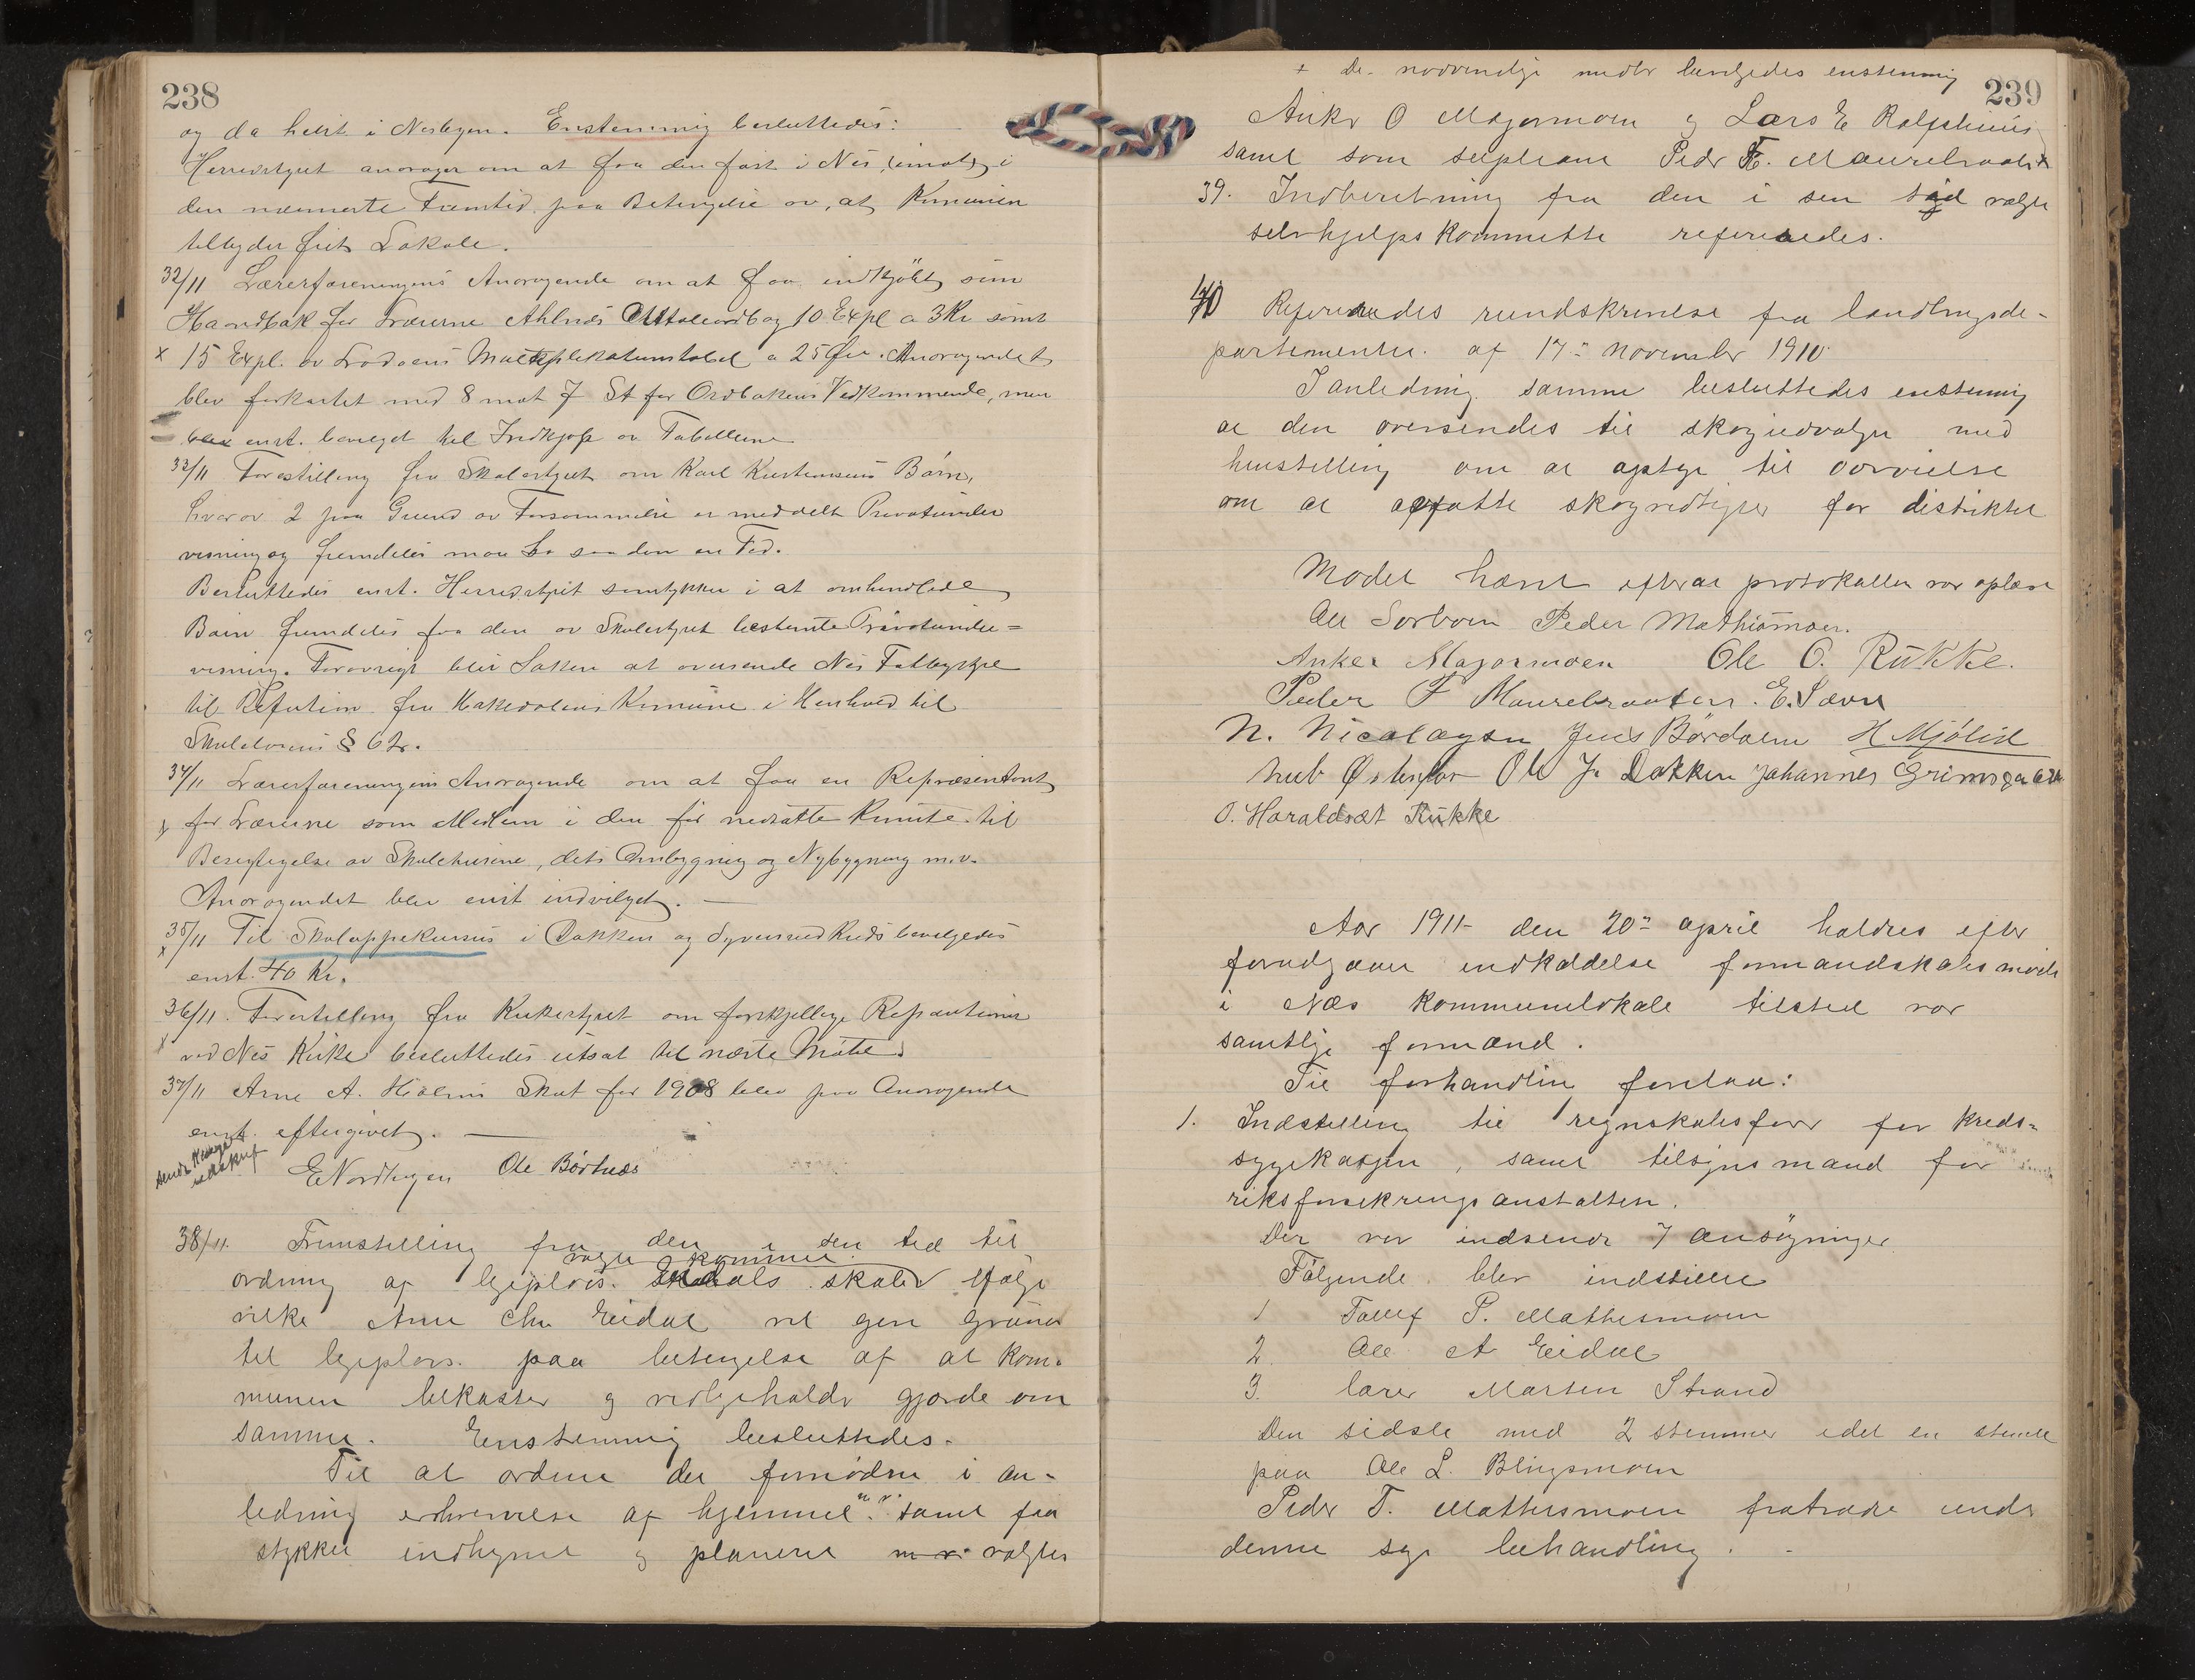 238
og da helst i Nesbyen. Enstemmig besluttedes:
Herredstyret andrager om at faa den fast i Nes, imot i
den nærmeste Fremtid paa Betingelse av, at Kommunen
tilbyder frit Lokale.
32/11 Lærerforeningens Andragende om at faa indkjøbt som
Haandbok for Lærerne Ahlnæs Uttaleordbog 10 Expl a 3 Kr samt
x 15 Expl. av Multiplikationstabel a 25 Øre. Andragendet
blev forkastet med 8 mot 7 St for Ordbokens Vedkommende, men
blev enst. bevilget til Indkjøp av Tabellerne
33/11 Forestilling fra Skolestyret om Karl Kristensens Børn,
hvorav 2 paa Grund av Forsømmelse er meddelt Privatunder
visning og fremdeles maa ha saadan en Tid.
Besluttedes enst. Herredstyret samtykker i at omhandlede
Børn fremdeles faa den av Skolestyret bestemte Privatunder=
visning. Forøvrigt blir Saken at oversende Nes Fattigstyre
til Refusion fra Kommune i Henhold til
Skolelovens § 62.
34/11 Lærerforeningens Andragende om at faa en Repræsentant
x for Lærerne som Medlem i den før nedsatte Komite til
Besigtigelse av Skolehusene, dets Ombygning og Nybygning m.v.
Andragendet blev enst indvilget. —
35/11 Til Skoleppekursus i Dokken og Kreds bevilgedes
x enst. 40 Kr.
36/11. Forestilling fra Kirkestyret om forskjellige Reparationer
x ved Nes Kirke besluttedes utsat til næste Møte.
37/11 Arne A. Skat for 1908 blev paa Andragende
enst. eftergivet. —
sendt
utskrift
E Nordhagen Ole Børtnæs
38/11. Fremstilling fra den i sin tid til
valgte kommite
ordning af legeplads. skolals skaler ifølge
vilke Arne Chr Eidal vil give grund
til legeplads. paa betingelse af at kom-
munen bekoster g vedligeholder gjærde om
samme. Enstemmig besluttedes.
Til at ordne det fornødne i an-
ledning erhvervelse af hjemmel m. v. samt faa
stykket indhegnet g planeret m. v. valgtes
239
+ De nødvendige midler bevilgedes enstemmig
Anker O Magormoen g Lars E
samt som supleant Peder F. Maurebraaten x
39. Indberetning fra den i sin tid valgte
selvhjelps kommitte refereredes.
40 Refereredes rundskrivelse fra landbrugsde-
partementet. af 17de november 1910.
I anledning samme besluttedes enstemmig
at den oversendes til skogudvalget med
henstilling om at optage til overveielse
om at opsatte skogvedtegter for distriktet
Mødet hævet efter at protokollen var oplæst
Ole Sorboen Peder Mathiesmoen.
Anker Magormoen Ole O. Rukke.
Peder F Maurebraaten. E. Sævre
N. Nicolaysen Jens Børdalen H Mjølid
Ole Jr Dokken Johannes Grimsgaard
O. Haraldset Rukke
Aar 1911 den 20de april holdtes efter
forudgaaet indkaldelse formandskabsmøde
i Næs kommunelokale tilsted var
samtlige formænd.
Til forhandling foretaes:
1. Indstilling til regnskabsfører for kreds-
sygekassen, samt tilsynsmand for
riksforsikringsanstalten.
Der var indsendt 7 ansøgninger
Følgende blev indstillet
1 Tollef P. Mathiesmoen
2. Ole A Eidal
3. lærer Morten Strand
Den sidste med 2 stemmer idet en stemte
paa Ole L. Blingsmoen
Peder T. Mathiesmoen fratraadte under
denne sags behandling.